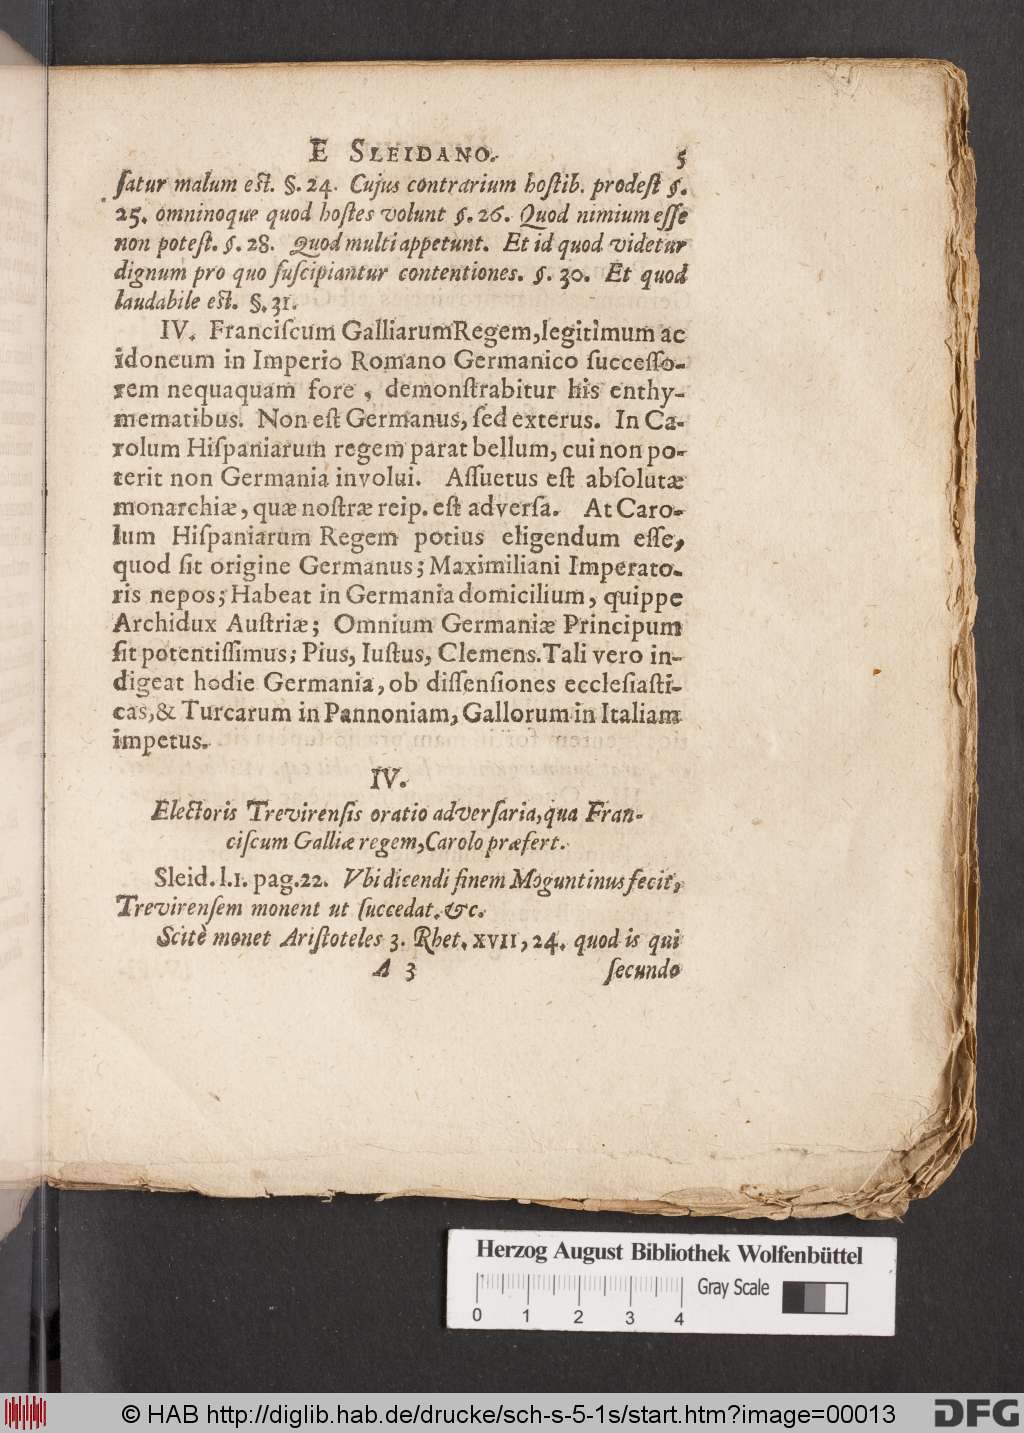 E SLEIDANO. 5
ſatur malum eſt. §. 24. Cujus contrarium hoſtib. prodeſt §.
25. omninoque quod hoſtes volunt §. 26. Quod nimium eſſe
non poteſt. §. 28. Quod multi appetunt. Et id quod videtur
dignum pro quo ſuſcipiantur contentiones. §. 30. Et quod
laudabile eſt. §. 31.
IV. Franciſcum Galliarum Regem, legitimum ac
idoneum in Imperio Romano Germanico ſucceſſo-
rem nequaquam fore, demonſtrabitur his enthy-
mematibus. Non eſt Germanus, ſed exterus. In Ca-
rolum Hiſpaniarum regem parat bellum, cui non po-
terit non Germania involui. Aſſuetus eſt abſolutæ
monarchiæ, quæ noſtræ reip. eſt adverſa. At Caro-
lum Hiſpaniarum Regem potius eligendum eſſe,
quod ſit origine Germanus; Maximiliani Imperato-
ris nepos; Habeat in Germania domicilium, quippe
Archidux Auſtriæ; Omnium Germaniæ Principum
ſit potentiſſimus; Pius, Iuſtus, Clemens. Tali vero in-
digeat hodie Germania, ob diſſenſiones eccleſiaſti-
cas, & Turcarum in Pannoniam, Gallorum in Italiam
impetus.
IV.
Electoris Trevirenſis oratio adverſaria, qua Fran-
ciſcum Galliæ regem, Carolo præfert.
Sleid. l.1. pag. 22. Vbi dicendi finem Moguntinus fecit,
Trevirenſem monent ut ſuccedat. &c.
Scitè monet Ariſtoteles 3. Rhet. XVII, 24. quod is qui
A 3 ſecundo
Herzog August Bibliothek Wolfenbüttel
Gray Scale
0 1 2 3 4
© HAB http://diglib.hab.de/drucke/sch-s-5-1s/start.htm?image=00013 DFG